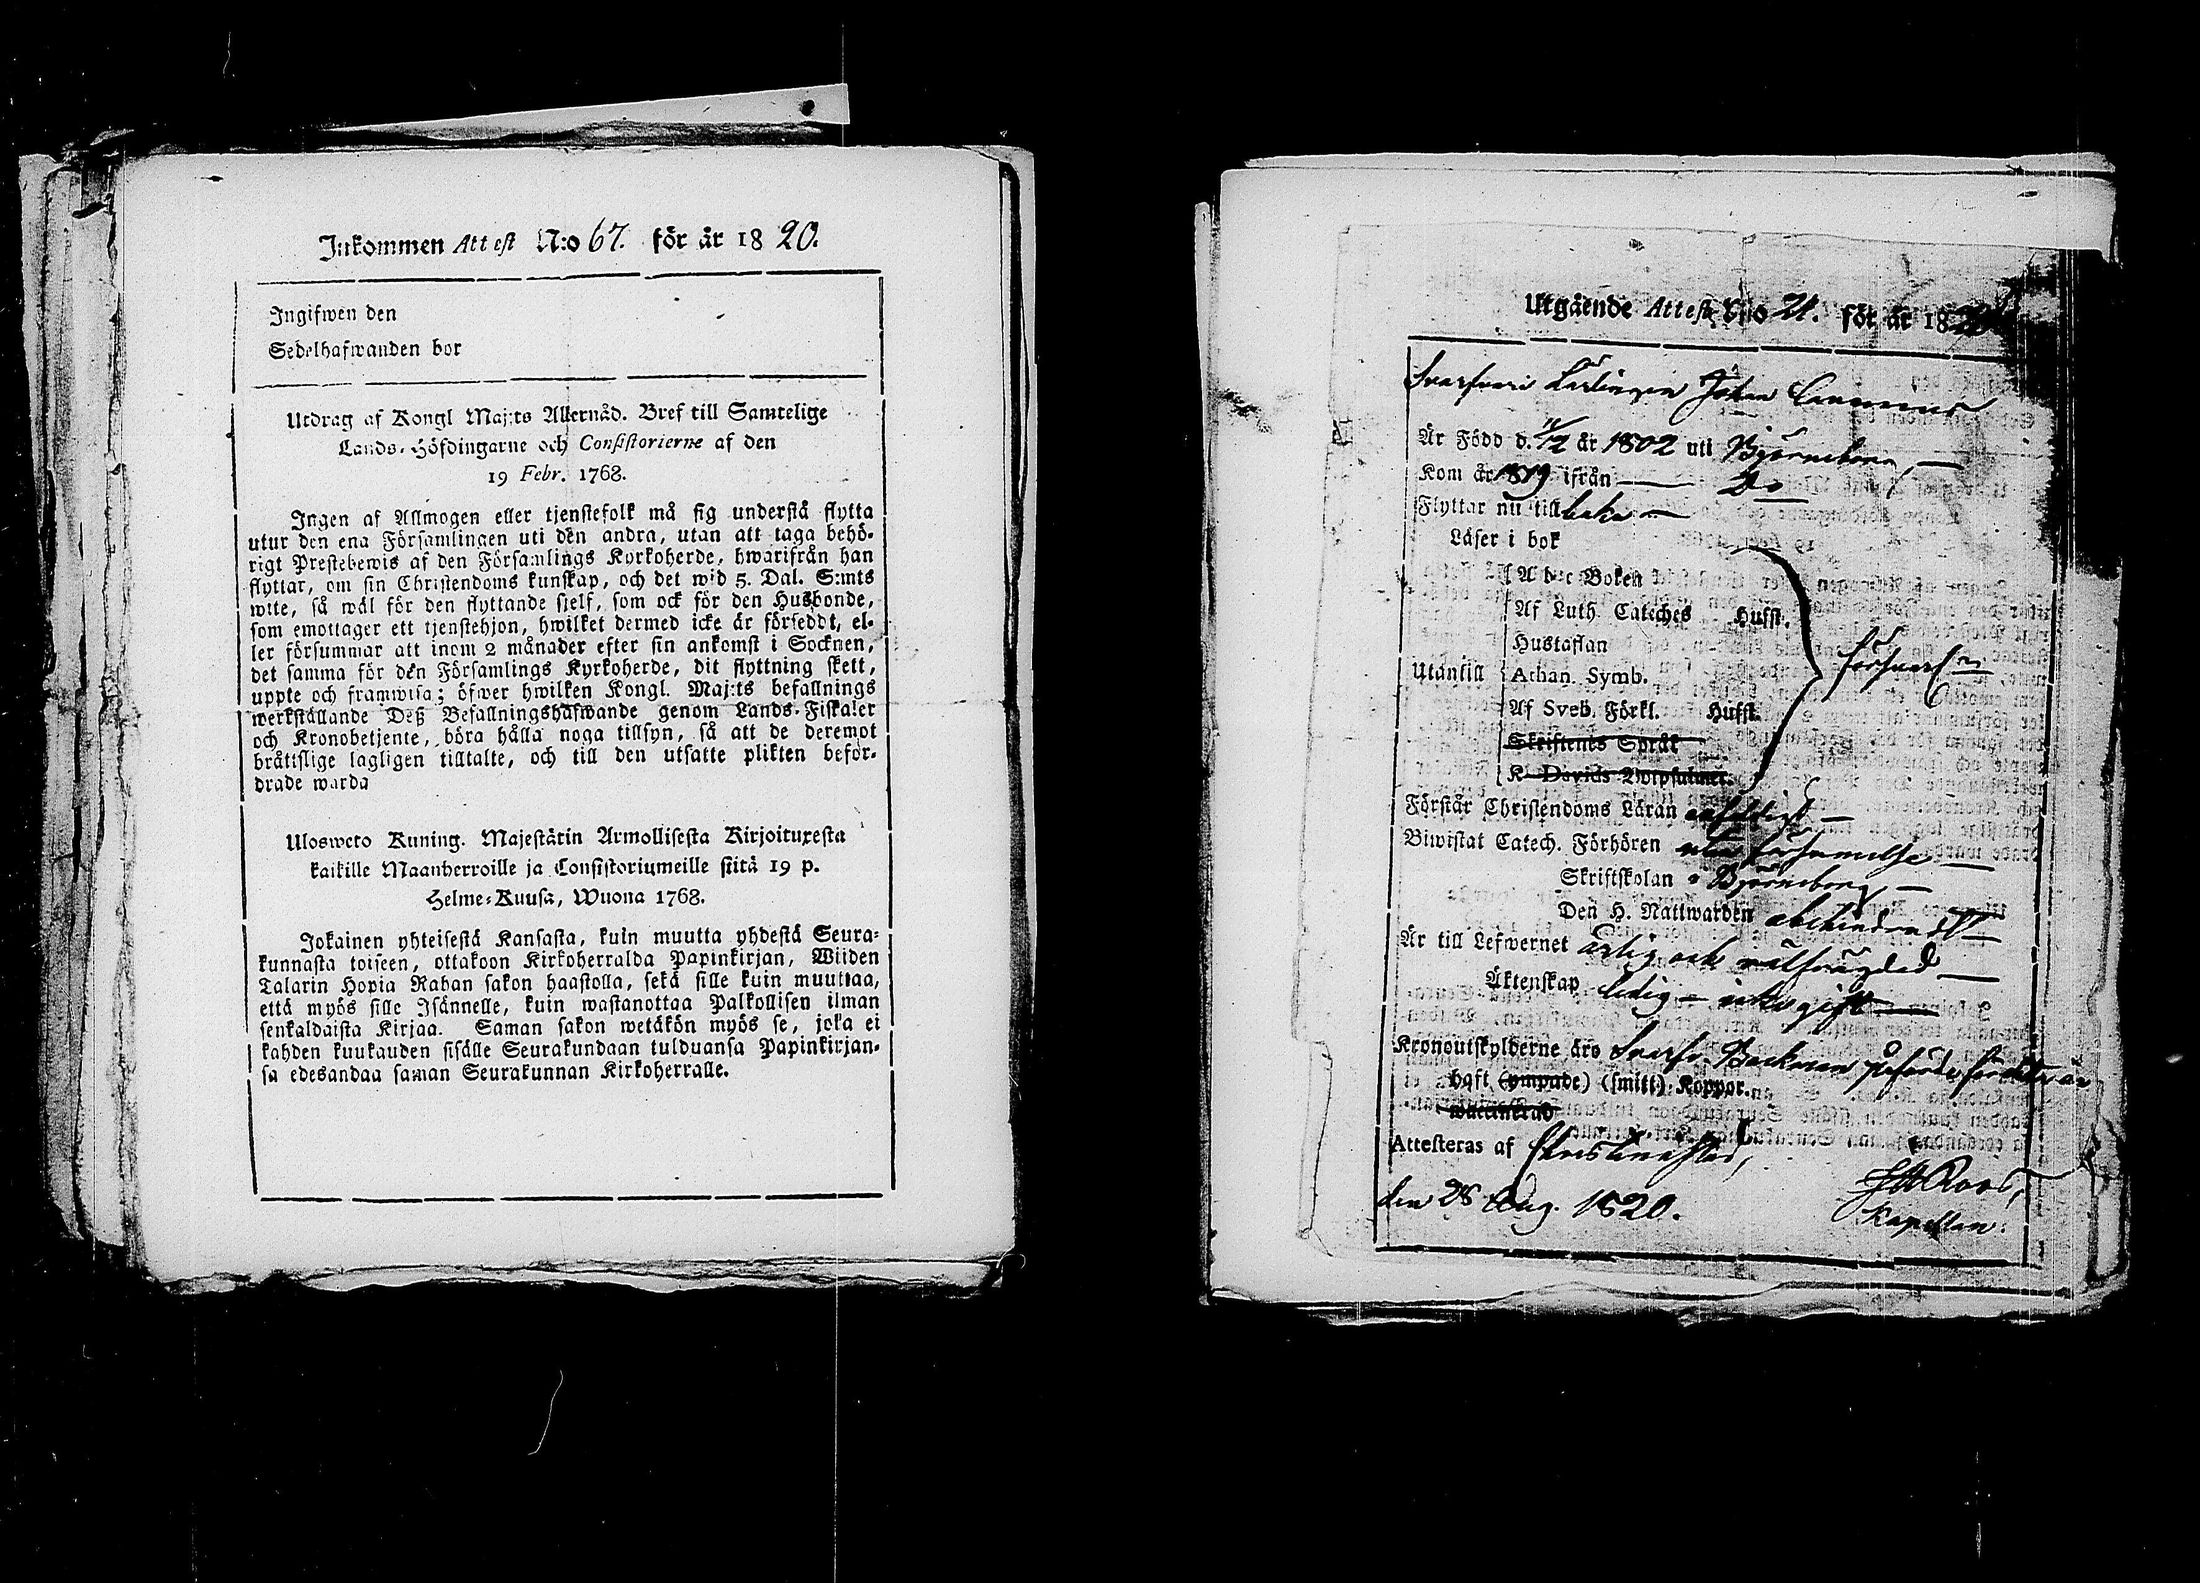 Inkommen Attest N:o 67. för år 1820.
Ingifwen den
Sedelhafwanden bor
Utdrag af Kongl Maj:ts Allernåd. Bref till Samtelige
Lands-Höfdingarne och Consistorierne af den
19 Febr. 1768.
Ingen af Allmogen eller tjenstefolk må sig understå flytta
utur den ena Församlingen uti den andra, utan att taga behö-
rigt Prestebewis af den Församlings Kyrkoherde, hwarifrån han
flyttar, om sin Christendoms kunskap, och det wid 5. Dal. S:mts
wite, så wäl för den flyttande sjelf, som ock för den Husbonde,
som emottager ett tjenstehjon, hwilket dermed icke är försedt, el-
ler försummar att inom 2 månader efter sin ankomst i Socknen,
det samma för den Församlings Kyrkoherde, dit flyttning skett,
uppte och framwisa; öfwer hwilken Kongl. Maj:ts befallnings
werkställande Deß Befallningshafwande genom Lands-Fiskaler
och Kronobetjente, böra hålla noga tillsyn, så att de deremot
bråttslige lagligen tilltalte, och till den utsatte plikten befor-
drade warda
Ulosweto Kuning. Majestätin Armollisesta Kirjoituxesta
kaikille Maanherroille ja Consistoriumeille siitä 19 p.
Helme-Kuusa, Wuona 1768.
Jokainen yhteisestä Kansasta, kuin muutta yhdestä Seura-
kunnasta toiseen, ottakoon Kirkoherralda Papinkirjan, Wiiden
Talarin Hopia Rahan sakon haastolla, sekä sille kuin muuttaa,
että myös sille Isännelle, kuin wastanottaa Palkollisen ilman
senkaldaista Kirjaa. Saman sakon wetäkön myös se, joka ei
kahden kuukauden sisälle Seurakundaan tulduansa Papinkirjan-
sa edesandaa saman Seurakunnan Kirkoherralle.
Utgående Attest N:o 21. för år 18
Svarfveri Lärlingen Johan
Är Född d. 11/12 år 1802 uti Björneborg,
Kom år 1819 ifrån Do
Flyttar nu tillbaka
Läser i bok
Abc Boken
Af Luth. Cateches Hufst.
Hustaflan
Utantill Athan. Symb. försvarl:n
Af Sveb. Förkl. Hufst.
Skriftenes Språk
K. Davids Botpsalmer.
Förstår Christendoms Läran enfaldigt
Biwistat Catech. Förhören utan försummelse
Skriftskolan i Björneborg,
Den H. Nattwarden obehindradt
Är till Lefwernet ärlig och välfrägdad
Äktenskap ledig - icke gift
Kronoutskylderne äro Svarfv. Backman påförde för detta år
haft (ympade) (smitt) Koppor.
waccinerad
Attesteras af Christinestad,
den 28 Aug. 1820. Roos,
Kapellan.